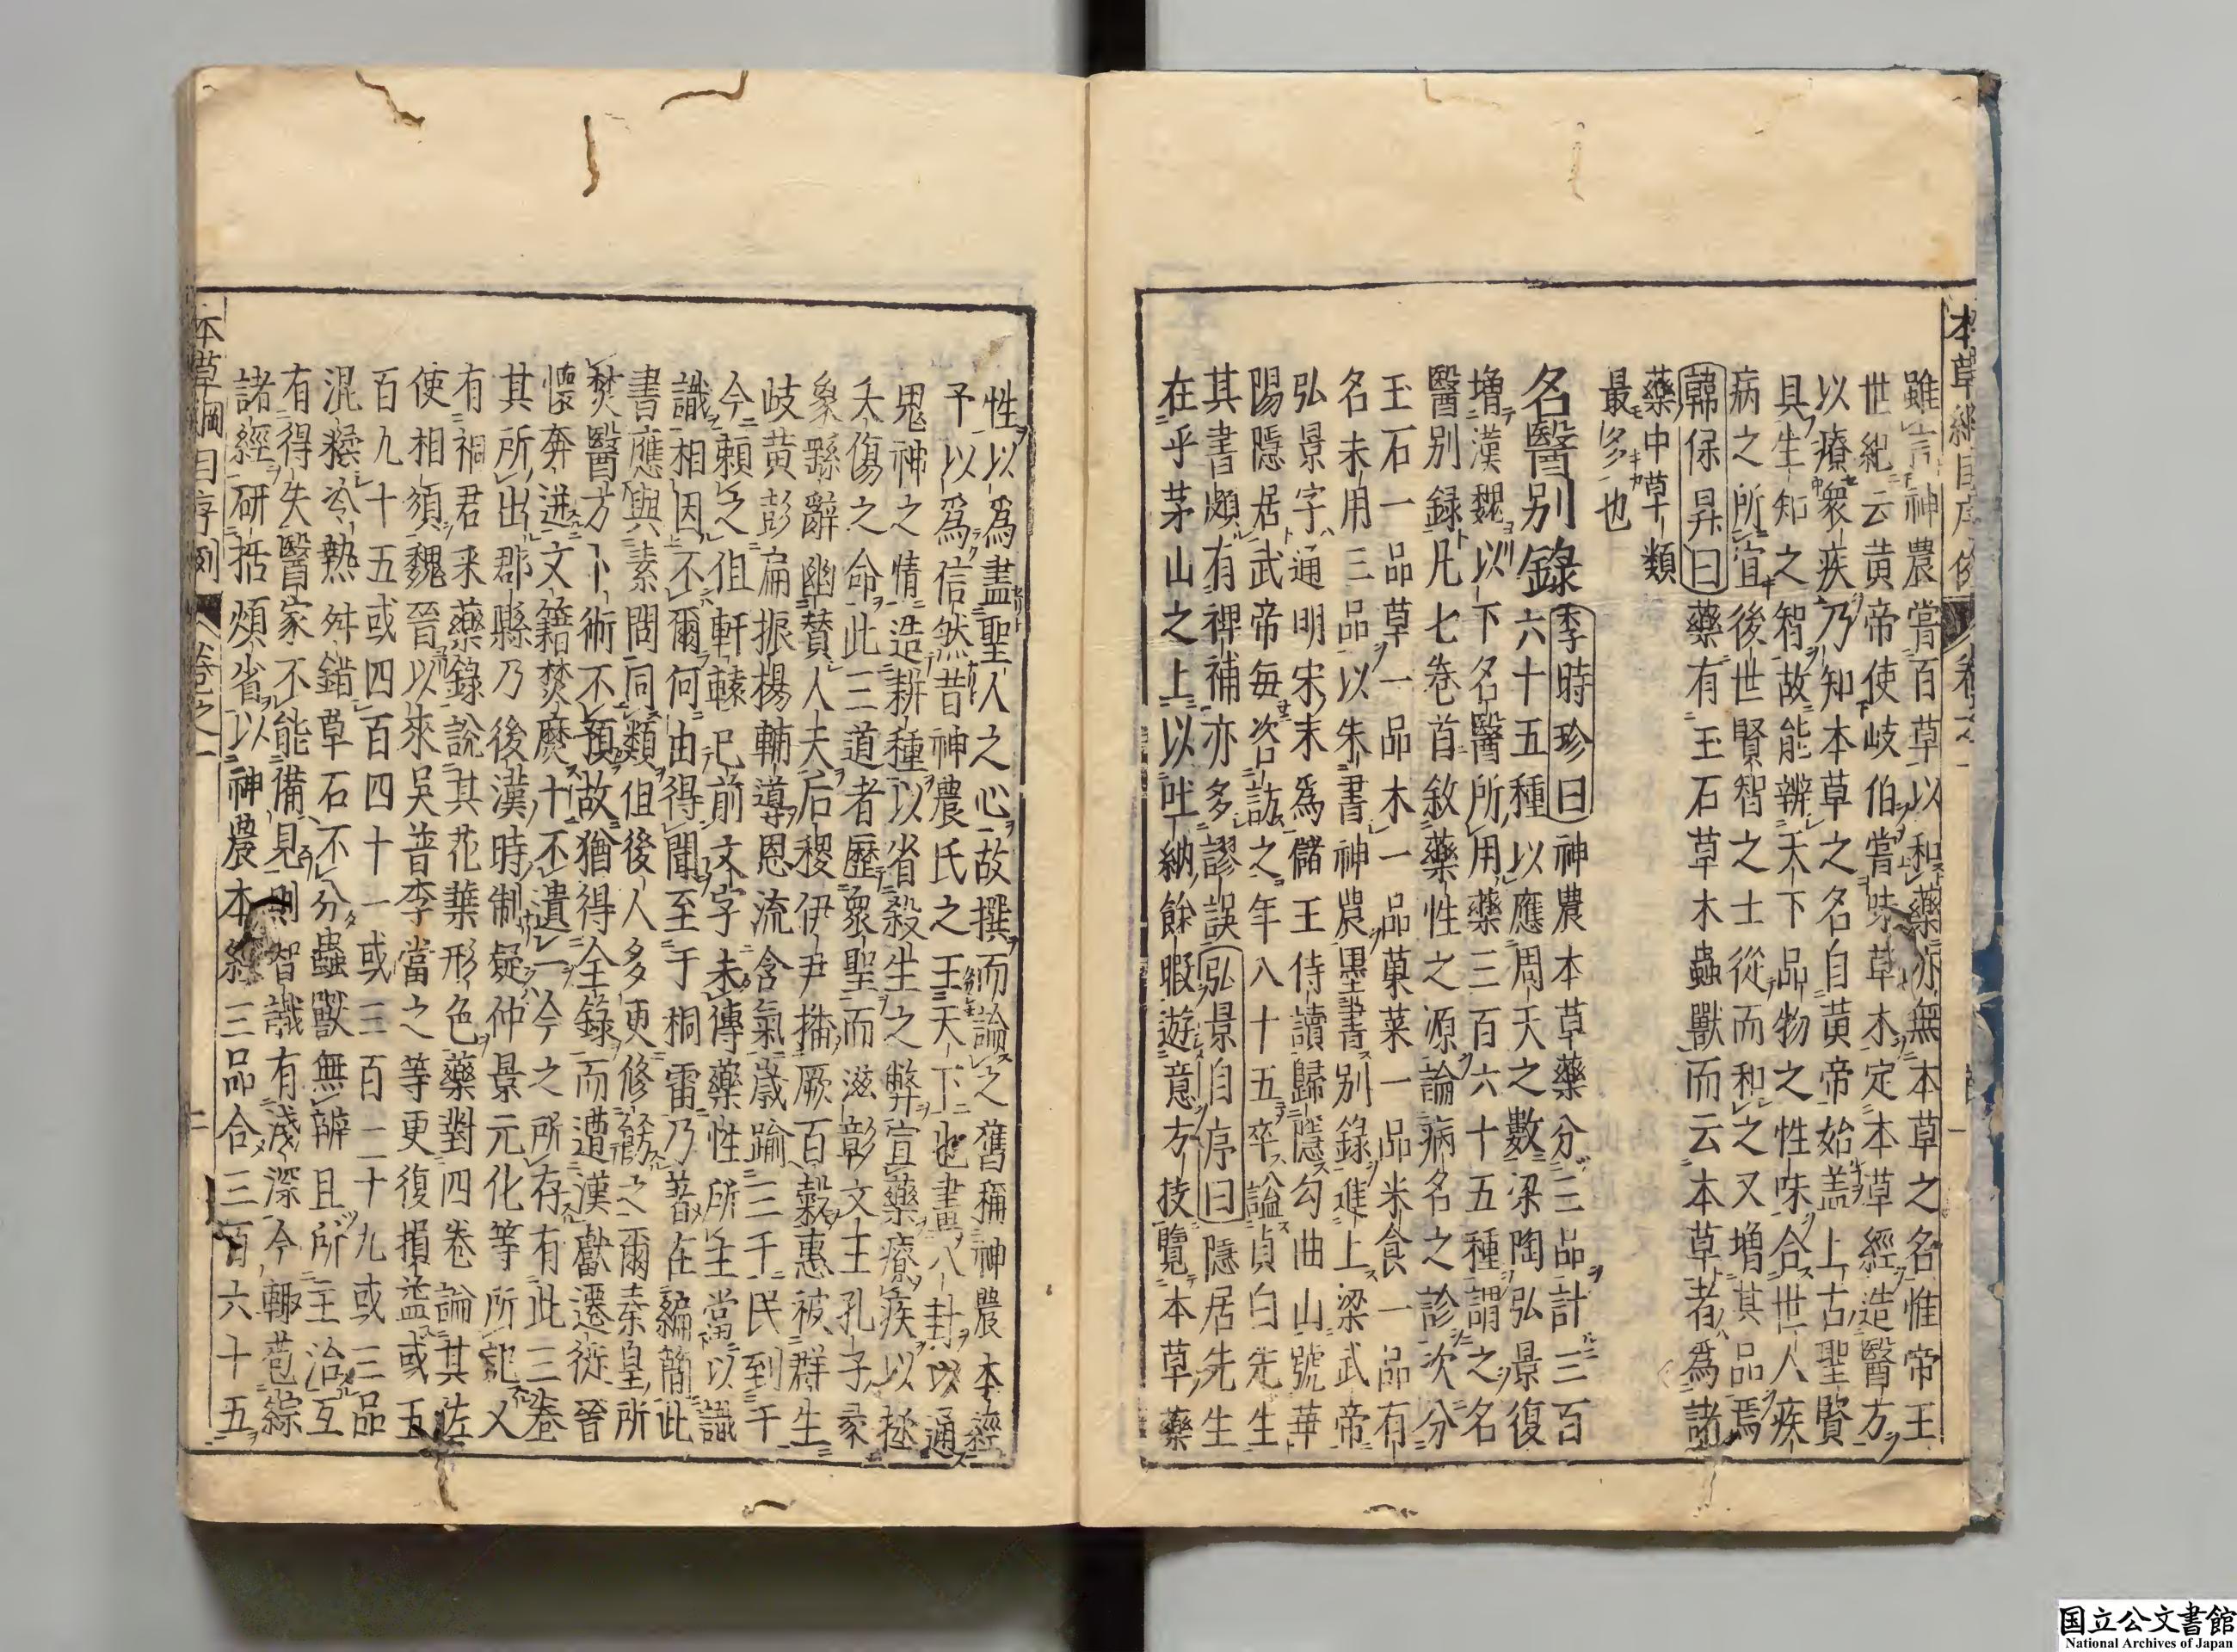 本草綱目序例 卷之一
雖言神農嘗百草以和藥亦無本草之名惟帝王
世紀云黃帝使岐伯嘗味草木定本草經造醫方
以療衆疾乃知本草之名自黃帝始盖上古聖賢
具生知之智故能辨天下品物之性味合世人疾
病之所宜後世賢智之士從而和之又增其品焉
韓保昇曰藥有玉石草木蟲獸而云本草者爲諸
藥中草類
最多也
名醫別錄李時珍曰神農本草藥分三品計三百
六十五種以應周天之數梁陶弘景復
增漢魏以下名醫所用藥三百六十五種謂之名
醫別錄凡七卷首敘藥性之源論病名之診次分
玉石一品草一品木一品菓菜一品米食一品有
名未用三品以朱書神農墨書別錄進上梁武帝
弘景字通明宋末爲儲王侍讀歸隱勾曲山號華
陽隱居武帝每咨訪之年八十五卒謚貞白先生
其書頗有裨補亦多謬誤弘景自序曰隱居先生
在乎茅山之上以吐納餘暇遊意方技覽本草藥
性以爲盡聖人之心故撰而論之舊稱神農本經
予以爲信然昔神農氏之王天下也畫八卦以通
鬼神之情造耕種以省殺生之弊宣藥療疾以拯
夭傷之命此三道者歷衆聖而滋彰文王孔子彖
象繇辭幽贊人天后稷伊尹播厥百穀惠被群生
岐黃彭扁振楊輔導恩流含氣歲踰三千民到于
今賴之但軒轅已前文字未傳藥性所主當以識
識相因不爾何由得聞至于桐雷乃著在編簡此
書應與素問同類但後人多更修飭之爾秦皇所
焚醫方卜術不預故猶得全錄而遭漢獻遷徙晉
懷奔迸文籍焚靡十不遺一今之所存有此三卷
其所出郡縣乃後漢時制疑仲景元化等所記又
有桐君采藥錄說其花葉形色藥對四卷論其佐
使相須魏晉以來吳普李當之等更復損益或五
百九十五或四百四十一或三百一十九或三品
混糅冷熱舛錯草石不分蟲獸無辨且所主治互
有得失醫家不能備見則智識有淺深今輙苞綜
諸經研括煩省以神農本經三品合三百六十五
本草綱目序例 卷之一 二
国立公文書館
National Archives of Japan